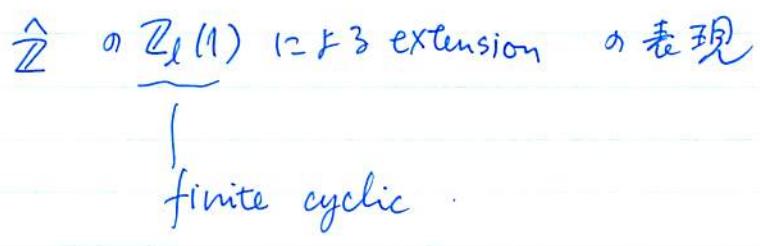 $\hat{\mathbb{Z}}$ の $\mathbb{Z}_\ell(1)$ による extension の表現
finite cyclic.